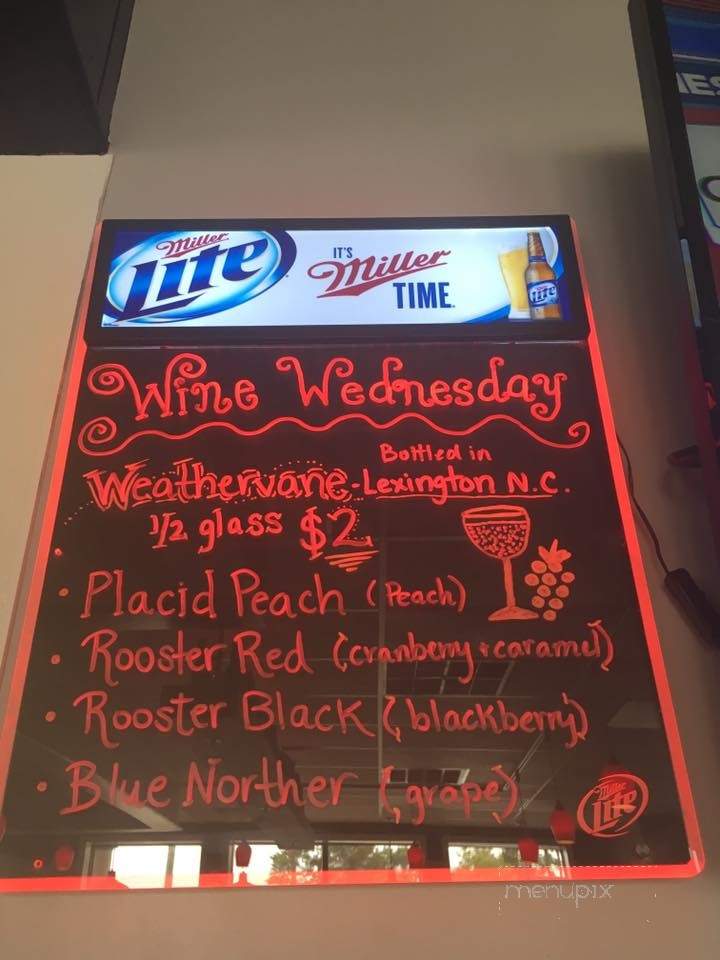 Miller
Lite
IT'S
Miller
TIME
Lite
Wine Wednesday
Bottled in
Weathervane - Lexington N.C.
1/2 glass $2
• Placid Peach (Peach)
• Rooster Red (cranberry + caramel)
• Rooster Black (blackberry)
• Blue Norther (grape)
Miller
Lite
menupix